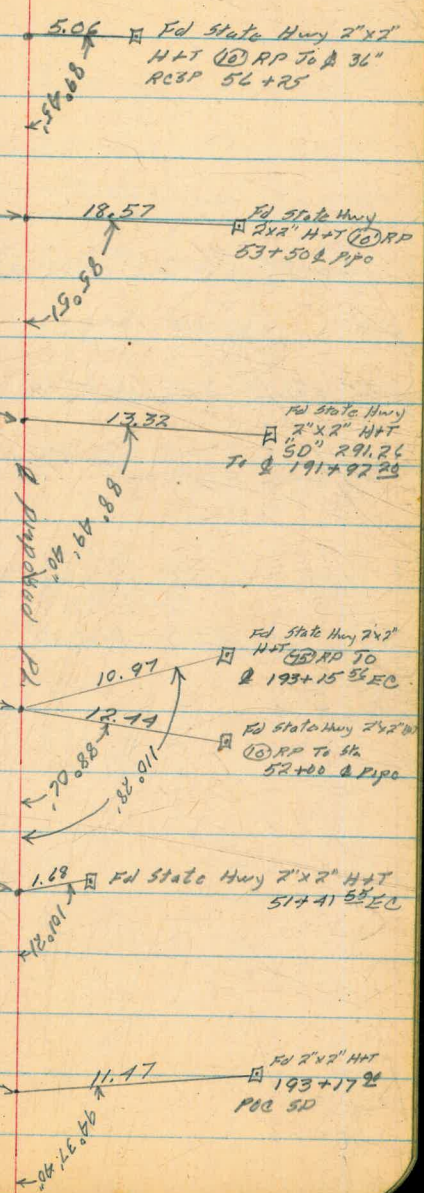 5.06 Fd State Hwy 2"x2"
H+T (10) RP To ℄ 36"
RCSP 56+25
89°45'
18.57 Fd State Hwy
2"x2" H+T (10') RP
53+50 ℄ Pipe
85°51'
13.32 Fd State Hwy
2"x2" H+T
"SD" 291.26
To ℄ 191+92 20
88° 49' 40"
℄ Proposed PL
10.97 Fd State Hwy 2"x2"
H+T (75) RP TO
℄ 193+15 56 EC
12.44 Fd State Hwy 2"x2" H+T
(10) RP To Sta
52+00 ℄ Pipe
88°02'
110°28'
1.68 Fd State Hwy 2"x2" H+T
51+41 55 EC
101°21'
11.47 Fd 2"x2" H+T
193+17
POC SD
94°37'40"